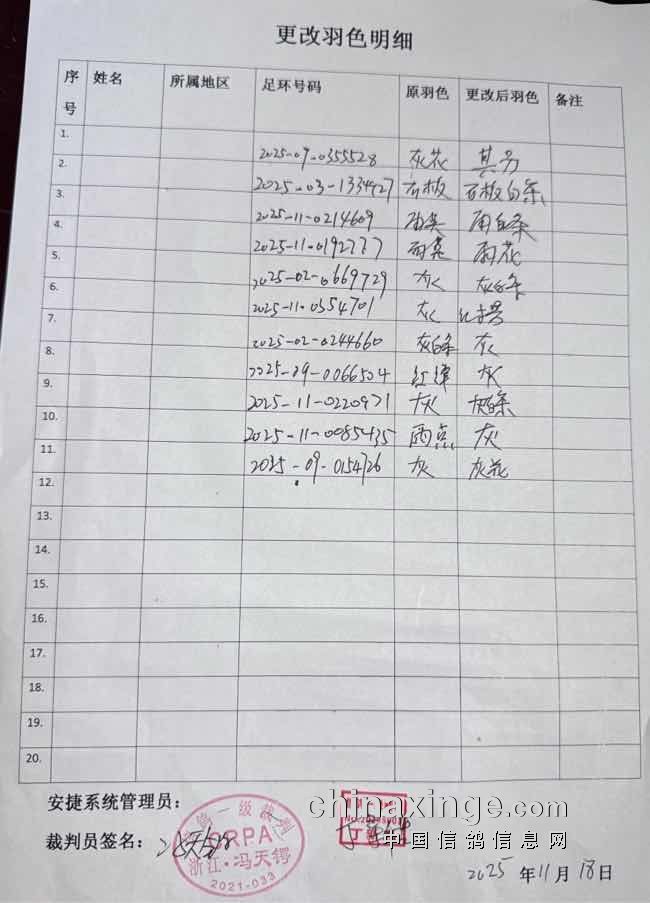 更改羽色明细
序号 姓名 所属地区 足环号码 原羽色 更改后羽色 备注
1. 2025-09-0355528 灰花 其另
2. 2025-03-1334927 石板 石板白条
3. 2025-11-0214609 雨白条
4. 2025-11-0192777 雨花
5. 2025-02-0669729 灰 灰白条
6. 2025-11-0554701 灰
7. 2025-02-0244660 灰白条 灰
8. 2025-09-0066504 红绛 灰
9. 2025-11-0220971 灰 灰白条
10. 2025-11-0085435 雨点 灰
11. 2025-09-0154726 灰 灰花
12.
13.
14.
15.
16.
17.
18.
19.
20.
安捷系统管理员:
裁判员签名:
一级裁判
CRPA
浙江·冯天锷
2021-033
chinaxinge.com
中国信鸽信息网
2025 年 11 月 18 日